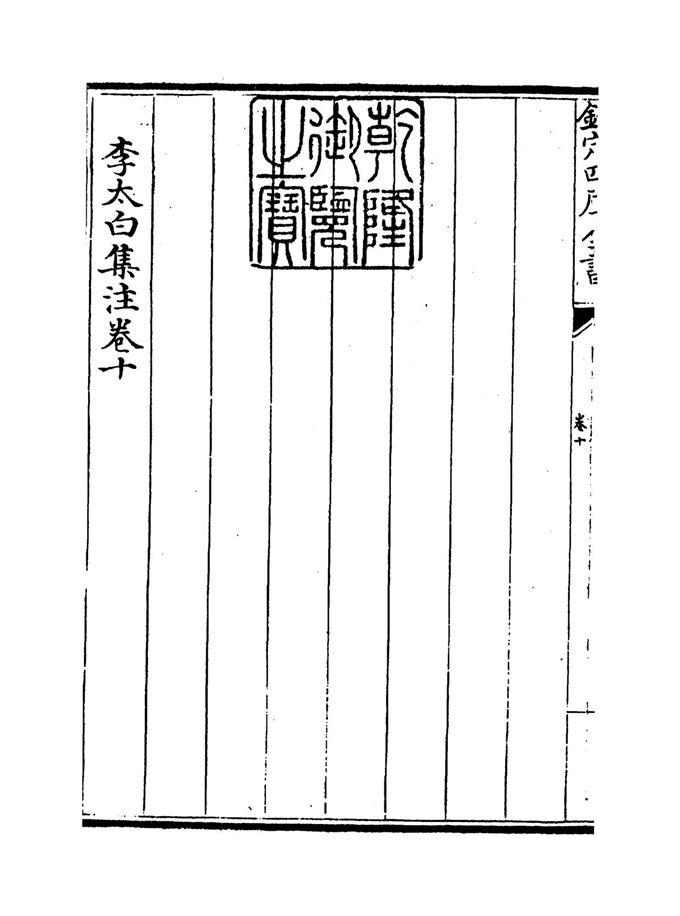 欽定四庫全書
卷十
乾隆
御覽
之寶
李太白集注卷十